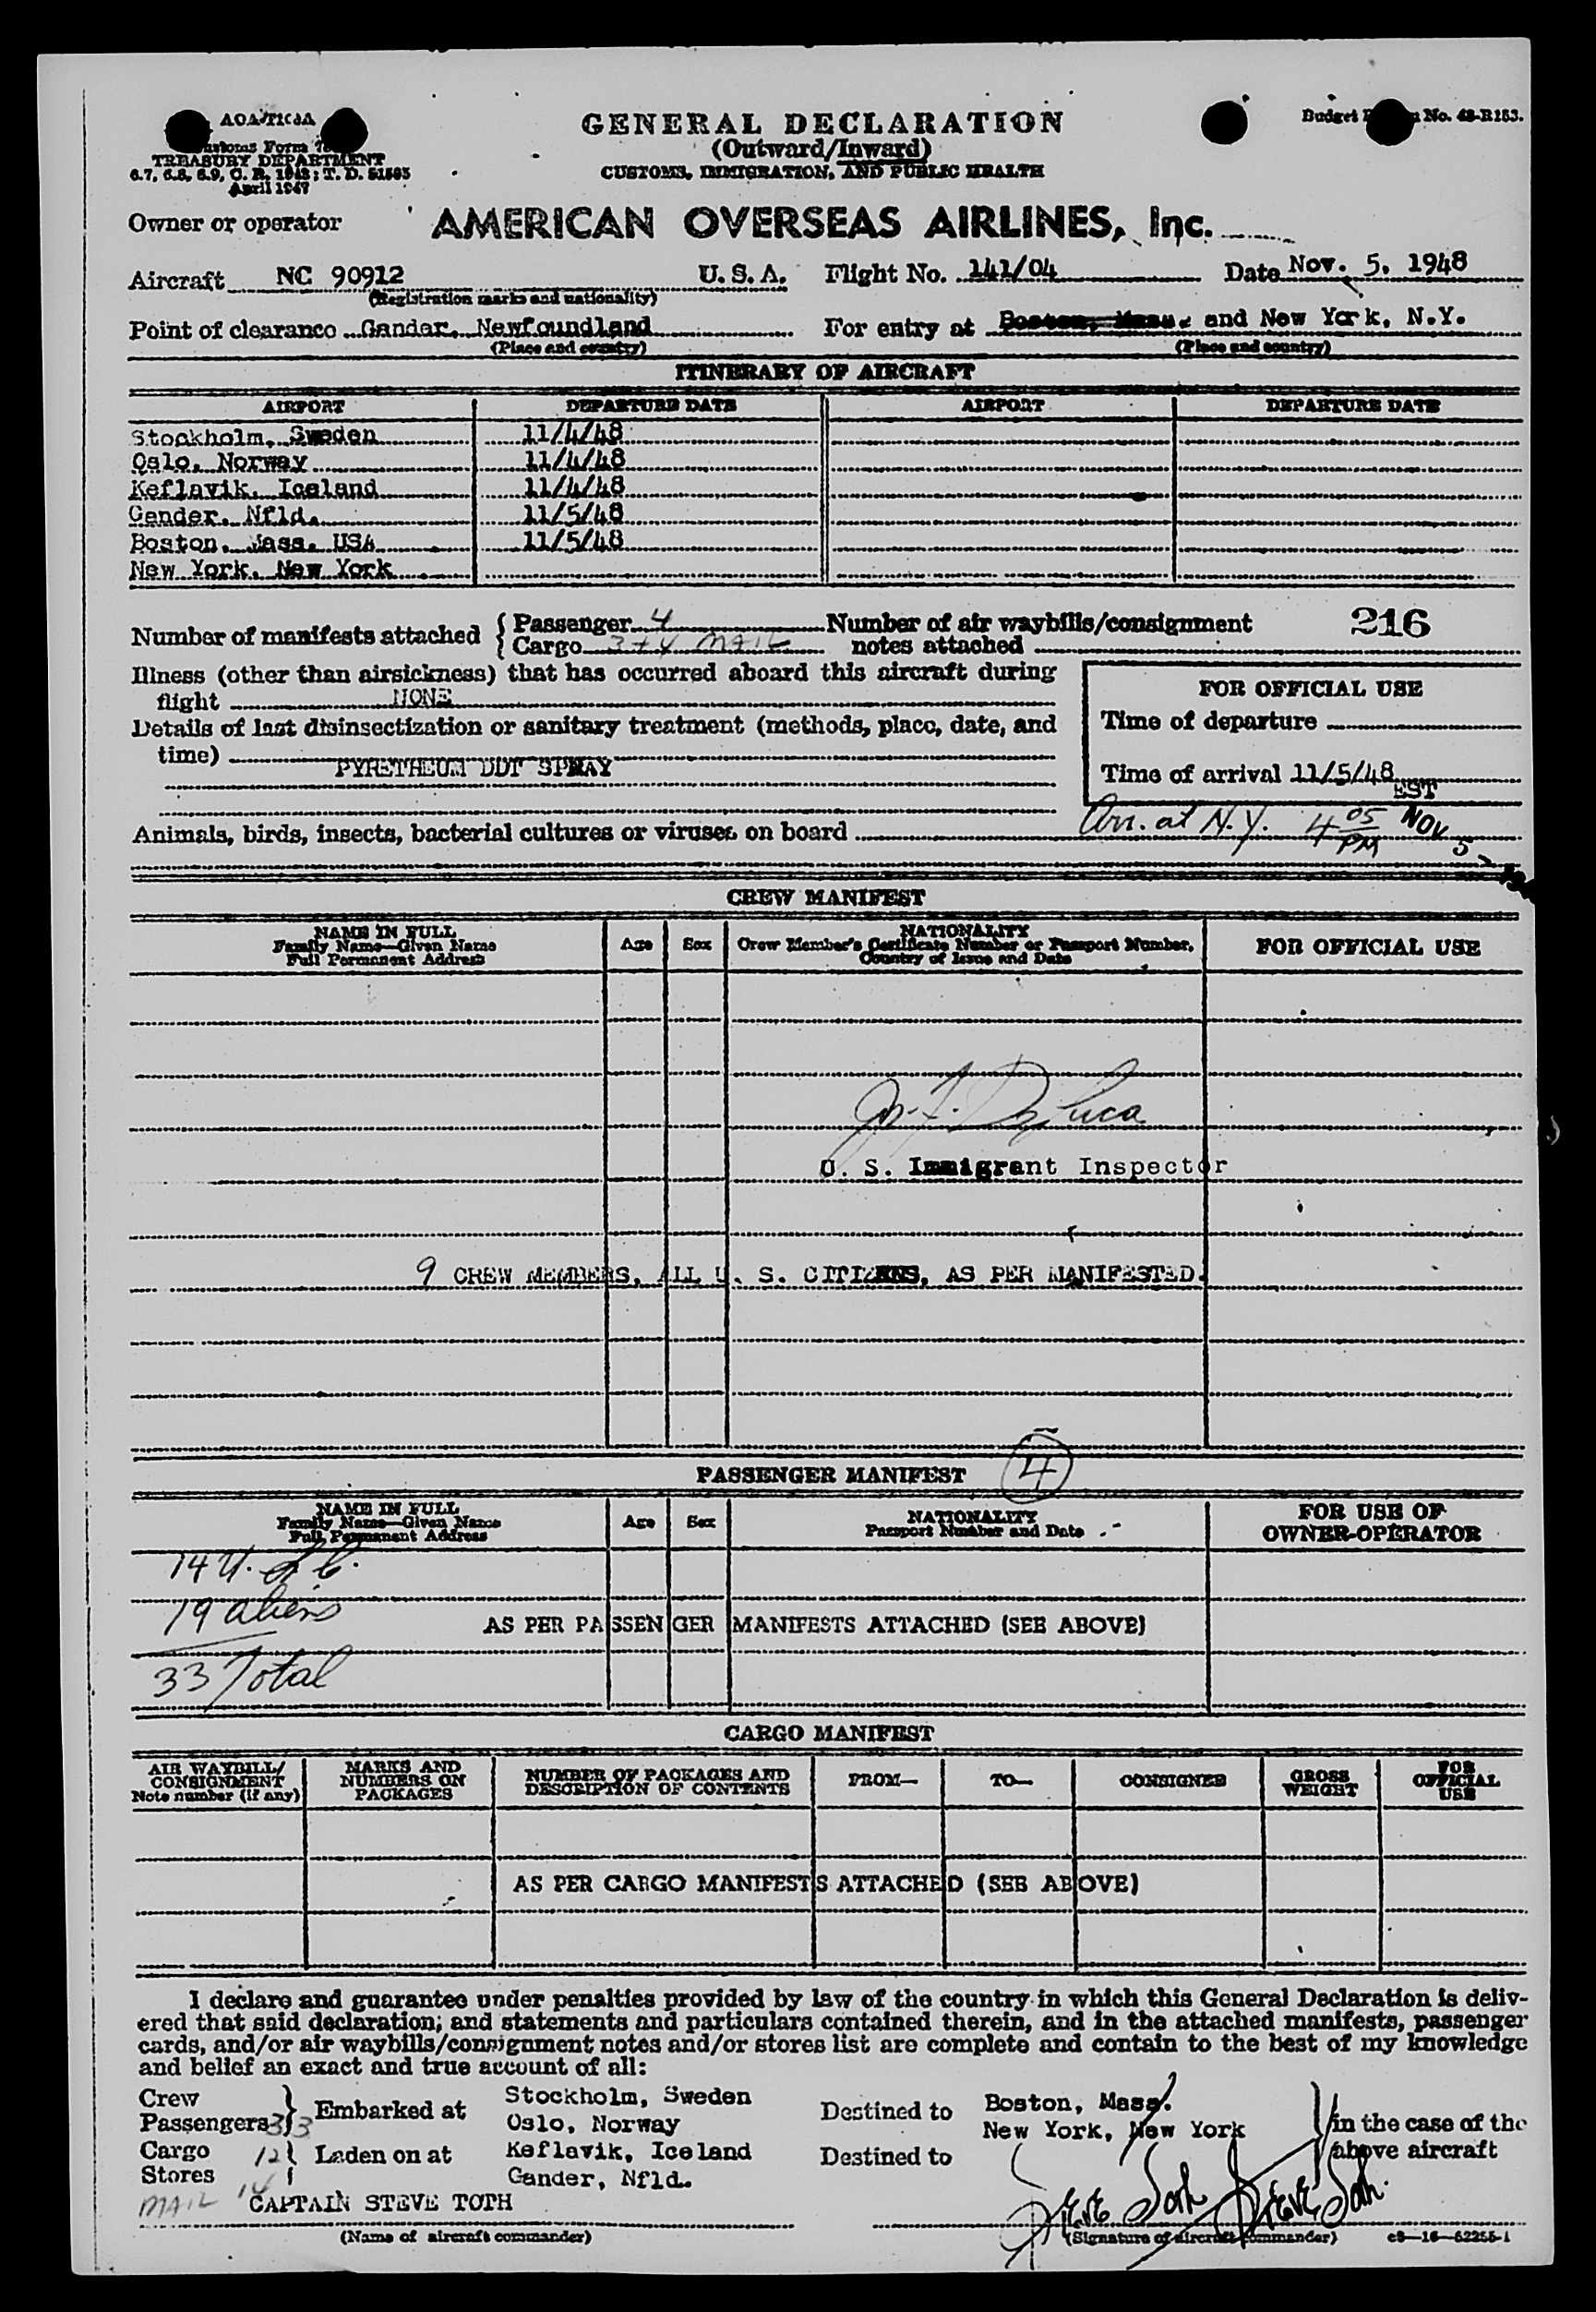 AOA/TICSA
GENERAL DECLARATION
Budget No. 48-R153.
Customs Form
(Outward/Inward)
TREASURY DEPARTMENT
CUSTOMS, IMMIGRATION, AND PUBLIC HEALTH
6.7, 6.8, 6.9, C. R. 1943; T. D. 51593
April 1947
Owner or operator AMERICAN OVERSEAS AIRLINES, Inc.
Aircraft NC 90912 U. S. A. Flight No. 141/04 Date Nov. 5, 1948
(Registration marks and nationality)
Point of clearance Gander, Newfoundland For entry at Boston, Mass. and New York, N.Y.
(Place and country) (Place and country)
ITINERARY OF AIRCRAFT
AIRPORT DEPARTURE DATE AIRPORT DEPARTURE DATE
Stockholm, Sweden 11/4/48
Oslo, Norway 11/4/48
Keflavik, Iceland 11/4/48
Gander, Nfld. 11/5/48
Boston, Mass. USA 11/5/48
New York, New York
Number of manifests attached { Passenger 4 Number of air waybills/consignment 216
Cargo 3 + 4 MAIL notes attached
Illness (other than airsickness) that has occurred aboard this aircraft during
flight NONE
FOR OFFICIAL USE
Details of last disinsectization or sanitary treatment (methods, place, date, and
Time of departure
time)
PYRETHEUM DDT SPRAY
Time of arrival 11/5/48
EST
Animals, birds, insects, bacterial cultures or viruses on board
Arr. at N.Y. 4 05 PM NOV 5
CREW MANIFEST
NAME IN FULL
Family Name—Given Name
Full Permanent Address
Age Sex
NATIONALITY
Crew Member's Certificate Number or Passport Number,
Country of Issue and Date
FOR OFFICIAL USE
U. S. Immigrant Inspector
9 CREW MEMBERS, ALL U. S. CITIZENS, AS PER MANIFESTED.
PASSENGER MANIFEST 4
NAME IN FULL
Family Name—Given Name
Full Permanent Address
Age Sex
NATIONALITY
Passport Number and Date
FOR USE OF
OWNER-OPERATOR
14 U. S. C.
19 aliens
AS PER PASSENGER MANIFESTS ATTACHED (SEE ABOVE)
33 Total
CARGO MANIFEST
AIR WAYBILL/
CONSIGNMENT
Note number (if any)
MARKS AND
NUMBERS ON
PACKAGES
NUMBER OF PACKAGES AND
DESCRIPTION OF CONTENTS
FROM— TO— CONSIGNEE
GROSS
WEIGHT
FOR
OFFICIAL
USE
AS PER CARGO MANIFESTS ATTACHED (SEE ABOVE)
I declare and guarantee under penalties provided by law of the country in which this General Declaration is deliv-
ered that said declaration; and statements and particulars contained therein, and in the attached manifests, passenger
cards, and/or air waybills/consignment notes and/or stores list are complete and contain to the best of my knowledge
and belief an exact and true account of all:
Crew Stockholm, Sweden Boston, Mass.
Passengers 33 } Embarked at Oslo, Norway Destined to New York, New York in the case of the
Cargo 12 } Laden on at Keflavik, Iceland Destined to above aircraft
Stores Gander, Nfld.
MAIL 14 CAPTAIN STEVE TOTH
Steve Toth Steve Toth
(Name of aircraft commander) (Signature of aircraft commander) c3—16—52255-1